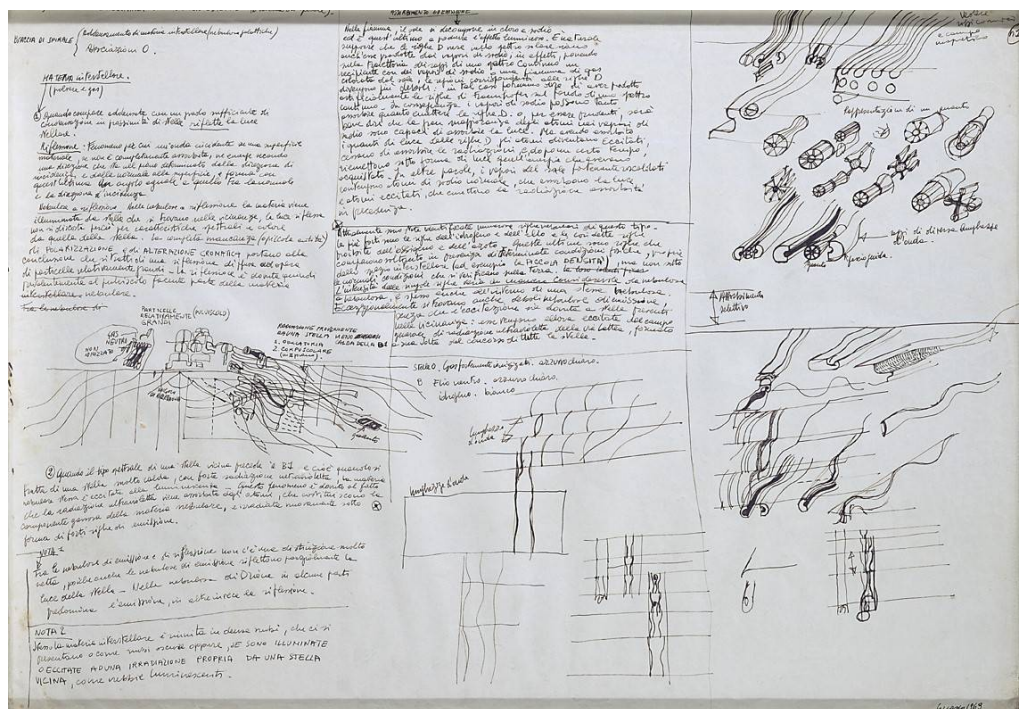 BRACCIA DI SPIRALE
Associazioni O.
MATERIA interstellare.
(polvere e gas)
① Quando compare addensata con un grado sufficiente di
concentrazione in prossimità di stelle riflette la luce
stellare.
Riflessione: Fenomeno per cui un'onda incidente su una superficie
materiale, se non è completamente assorbita, ne emerge secondo
una direzione che sta nel piano determinato dalla direzione di
incidenza e dalla normale alla superficie, e forma con
quest'ultima un angolo eguale a quello fra la normale
e la direzione d'incidenza.
Nebulose a riflessione. Nelle nebulose a riflessione la materia viene
illuminata da stelle che si trovano nelle vicinanze, la luce riflessa
non si discosta perciò per caratteristiche spettrali e colore
da quella della stella. La completa mancanza
di POLARIZZAZIONE e di ALTERAZIONE CROMATICA portano alla
conclusione che si tratti di una riflessione di luce ad opera
di particelle relativamente grandi. La riflessione è dovuta quindi
prevalentemente al pulviscolo facente parte della materia
interstellare o nebulare.
PARTICELLE (PULVISCOLO)
RELATIVAMENTE
GRANDI
GAS
NEUTRO
NON
IONIZZATO
RADIAZIONE PROVENIENTE
DA UNA STELLA
CALDA DELLA B1
1. ONDULATORIA
2. CORPUSCOLARE
② Quando il tipo spettrale di una stella vicina precede B1 e cioè quando si
tratta di una stella molto calda, con forte radiazione ultravioletta, la materia
nebulare stessa è eccitata alla luminescenza. Questo fenomeno è dovuto al fatto
che la radiazione ultravioletta viene assorbita dagli atomi, che costituiscono la
componente gassosa della materia nebulare, e irradiata nuovamente sotto
forma di forti righe di emissione.
NOTA
Fra le nebulose di emissione e di riflessione non c'è una distinzione molto
netta, poiché anche le nebulose di emissione riflettono parzialmente la
luce della stella. Nella nebulosa di Orione in alcune parti
predomina l'emissione, in altre invece la riflessione.
NOTA 2
Spesso la materia interstellare è riunita in dense nubi, che ci si
presentano o come nubi oscure oppure, SE SONO ILLUMINATE
O ECCITATE AD UNA IRRADIAZIONE PROPRIA DA UNA STELLA
VICINA, come nebbie luminescenti.
Nella fiamma, il sale si decompone in cloro e sodio
ed è quest'ultimo a produrre l'effetto luminoso. È naturale
supporre che le righe D nere nello spettro solare siano
anch'esse prodotte dai vapori di sodio; in effetti, ponendo
sulla traiettoria dei raggi di uno spettro continuo un
recipiente con dei vapori di sodio o una fiamma di gas
colorata dal sale, le regioni corrispondenti alle righe D
divengono più deboli: in tal caso possiamo dire di aver prodotto
artificialmente le righe di Fraunhofer sul fondo di uno spettro
continuo. Di conseguenza i vapori di sodio possono tanto
assorbire quanto emettere le righe D. o, per essere prudenti, sarà
bene dire che la gran maggioranza degli atomi nei vapori di
sodio sono capaci di assorbire la luce. Ma avendo assorbito
i quanti di luce delle righe D gli atomi diventano eccitati,
cessano di assorbire le radiazioni e dopo un certo tempo
riemettono sotto forma di luce quell'energia che avevano
acquistato. In altre parole, i vapori del sale fortemente riscaldati
contengono atomi di sodio normale, che assorbono la luce
e atomi eccitati, che emettono la radiazione assorbita
in precedenza.
le più forti sono le righe dell'idrogeno e dell'elio e le così dette righe
proibite dell'ossigeno e dell'azoto. Queste ultime sono righe che
compaiono soltanto in presenza di determinate condizioni fisiche,
dello spazio interstellare (ad esempio la PICCOLA DENSITÀ), ma non sotto
le normali condizioni che si verificano sulla terra.
Occasionalmente si trovano anche deboli nebulose di emissione,
senza che l'eccitazione sia dovuta a stelle presenti
nelle vicinanze: esse vengono allora eccitate dal campo
generale di radiazione ultravioletta della via Lattea, formato
a sua volta dal concorso di tutte le stelle.
STELLE O. Gas fortemente ionizzati. azzurro chiaro.
B Elio neutro. azzurro chiaro.
idrogeno. bianco
lunghezza
d'onda
lunghezza d'onda
e campo
magnetico
Rappresentazione di un quanto
raggi di diversa lunghezza
d'onda.
Assorbimento
selettivo
1969